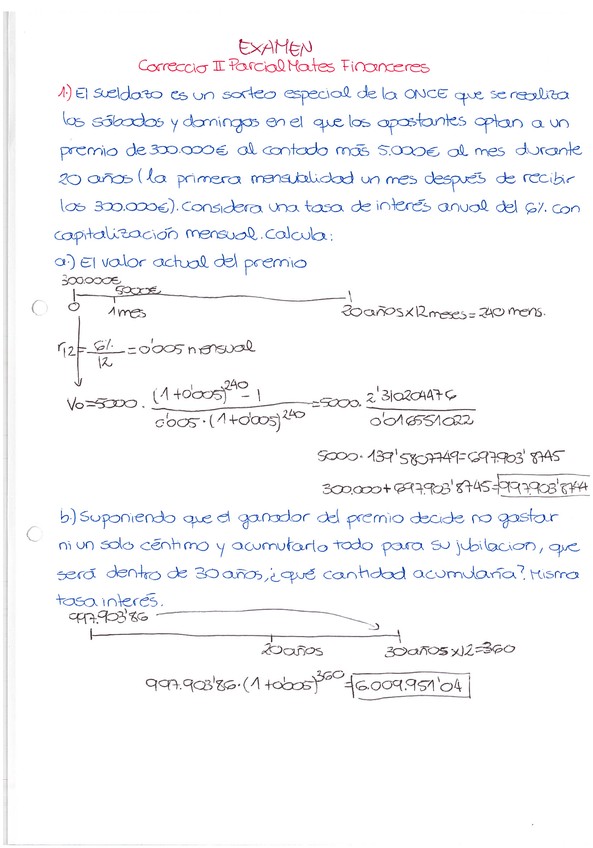 EXAMEN
Correccio II Parcial Mates Financeres
1.) El sueldazo es un sorteo especial de la ONCE que se realiza
los sábados y domingos en el que los apostantes optan a un
premio de 300.000€ al contado más 5.000€ al mes durante
20 años (la primera mensualidad un mes después de recibir
los 300.000€). Considera una tasa de interés anual del 6% con
capitalización mensual. Calcula:
a.) El valor actual del premio
300.000€
5000€
0 1mes 20 años x 12 meses = 240 mens.
r12 = 6%/12 = 0'005 mensual
Vo = 5000 · (1+0'005)^240 - 1 / 0'005 · (1+0'005)^240 = 5000 · 2'310204476 / 0'016551022
5000 · 139'5807749 = 697.903'8745
300.000 + 697.903'8745 = 997.903'8744
b.) Suponiendo que el ganador del premio decide no gastar
ni un solo céntimo y acumularlo todo para su jubilacion, que
será dentro de 30 años, ¿qué cantidad acumularía? Misma
tasa interés.
997.903'86
20 años 30 años x12 = 360
997.903'86 · (1+0'005)^360 = 6.009.951'04